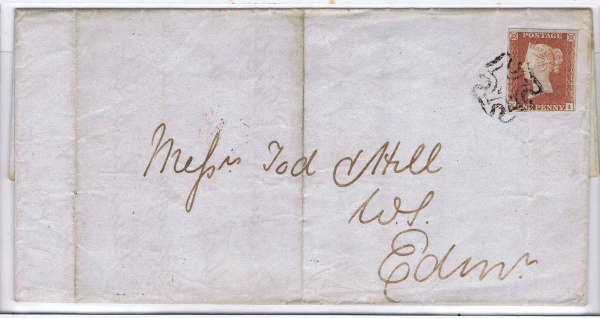 POSTAGE
PENNY I
Messrs Tod & Hill
W.S.
Edinr